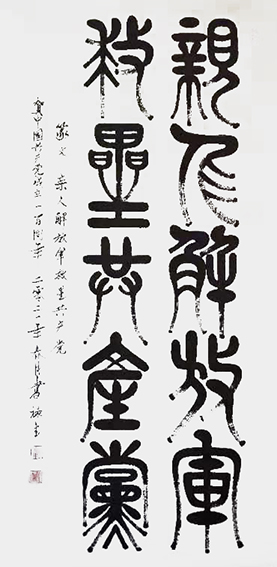 親人解放軍
救星共產黨
篆文 亲人解放軍救星共产党
中国共产党成立一百周年 二零二一年 月書